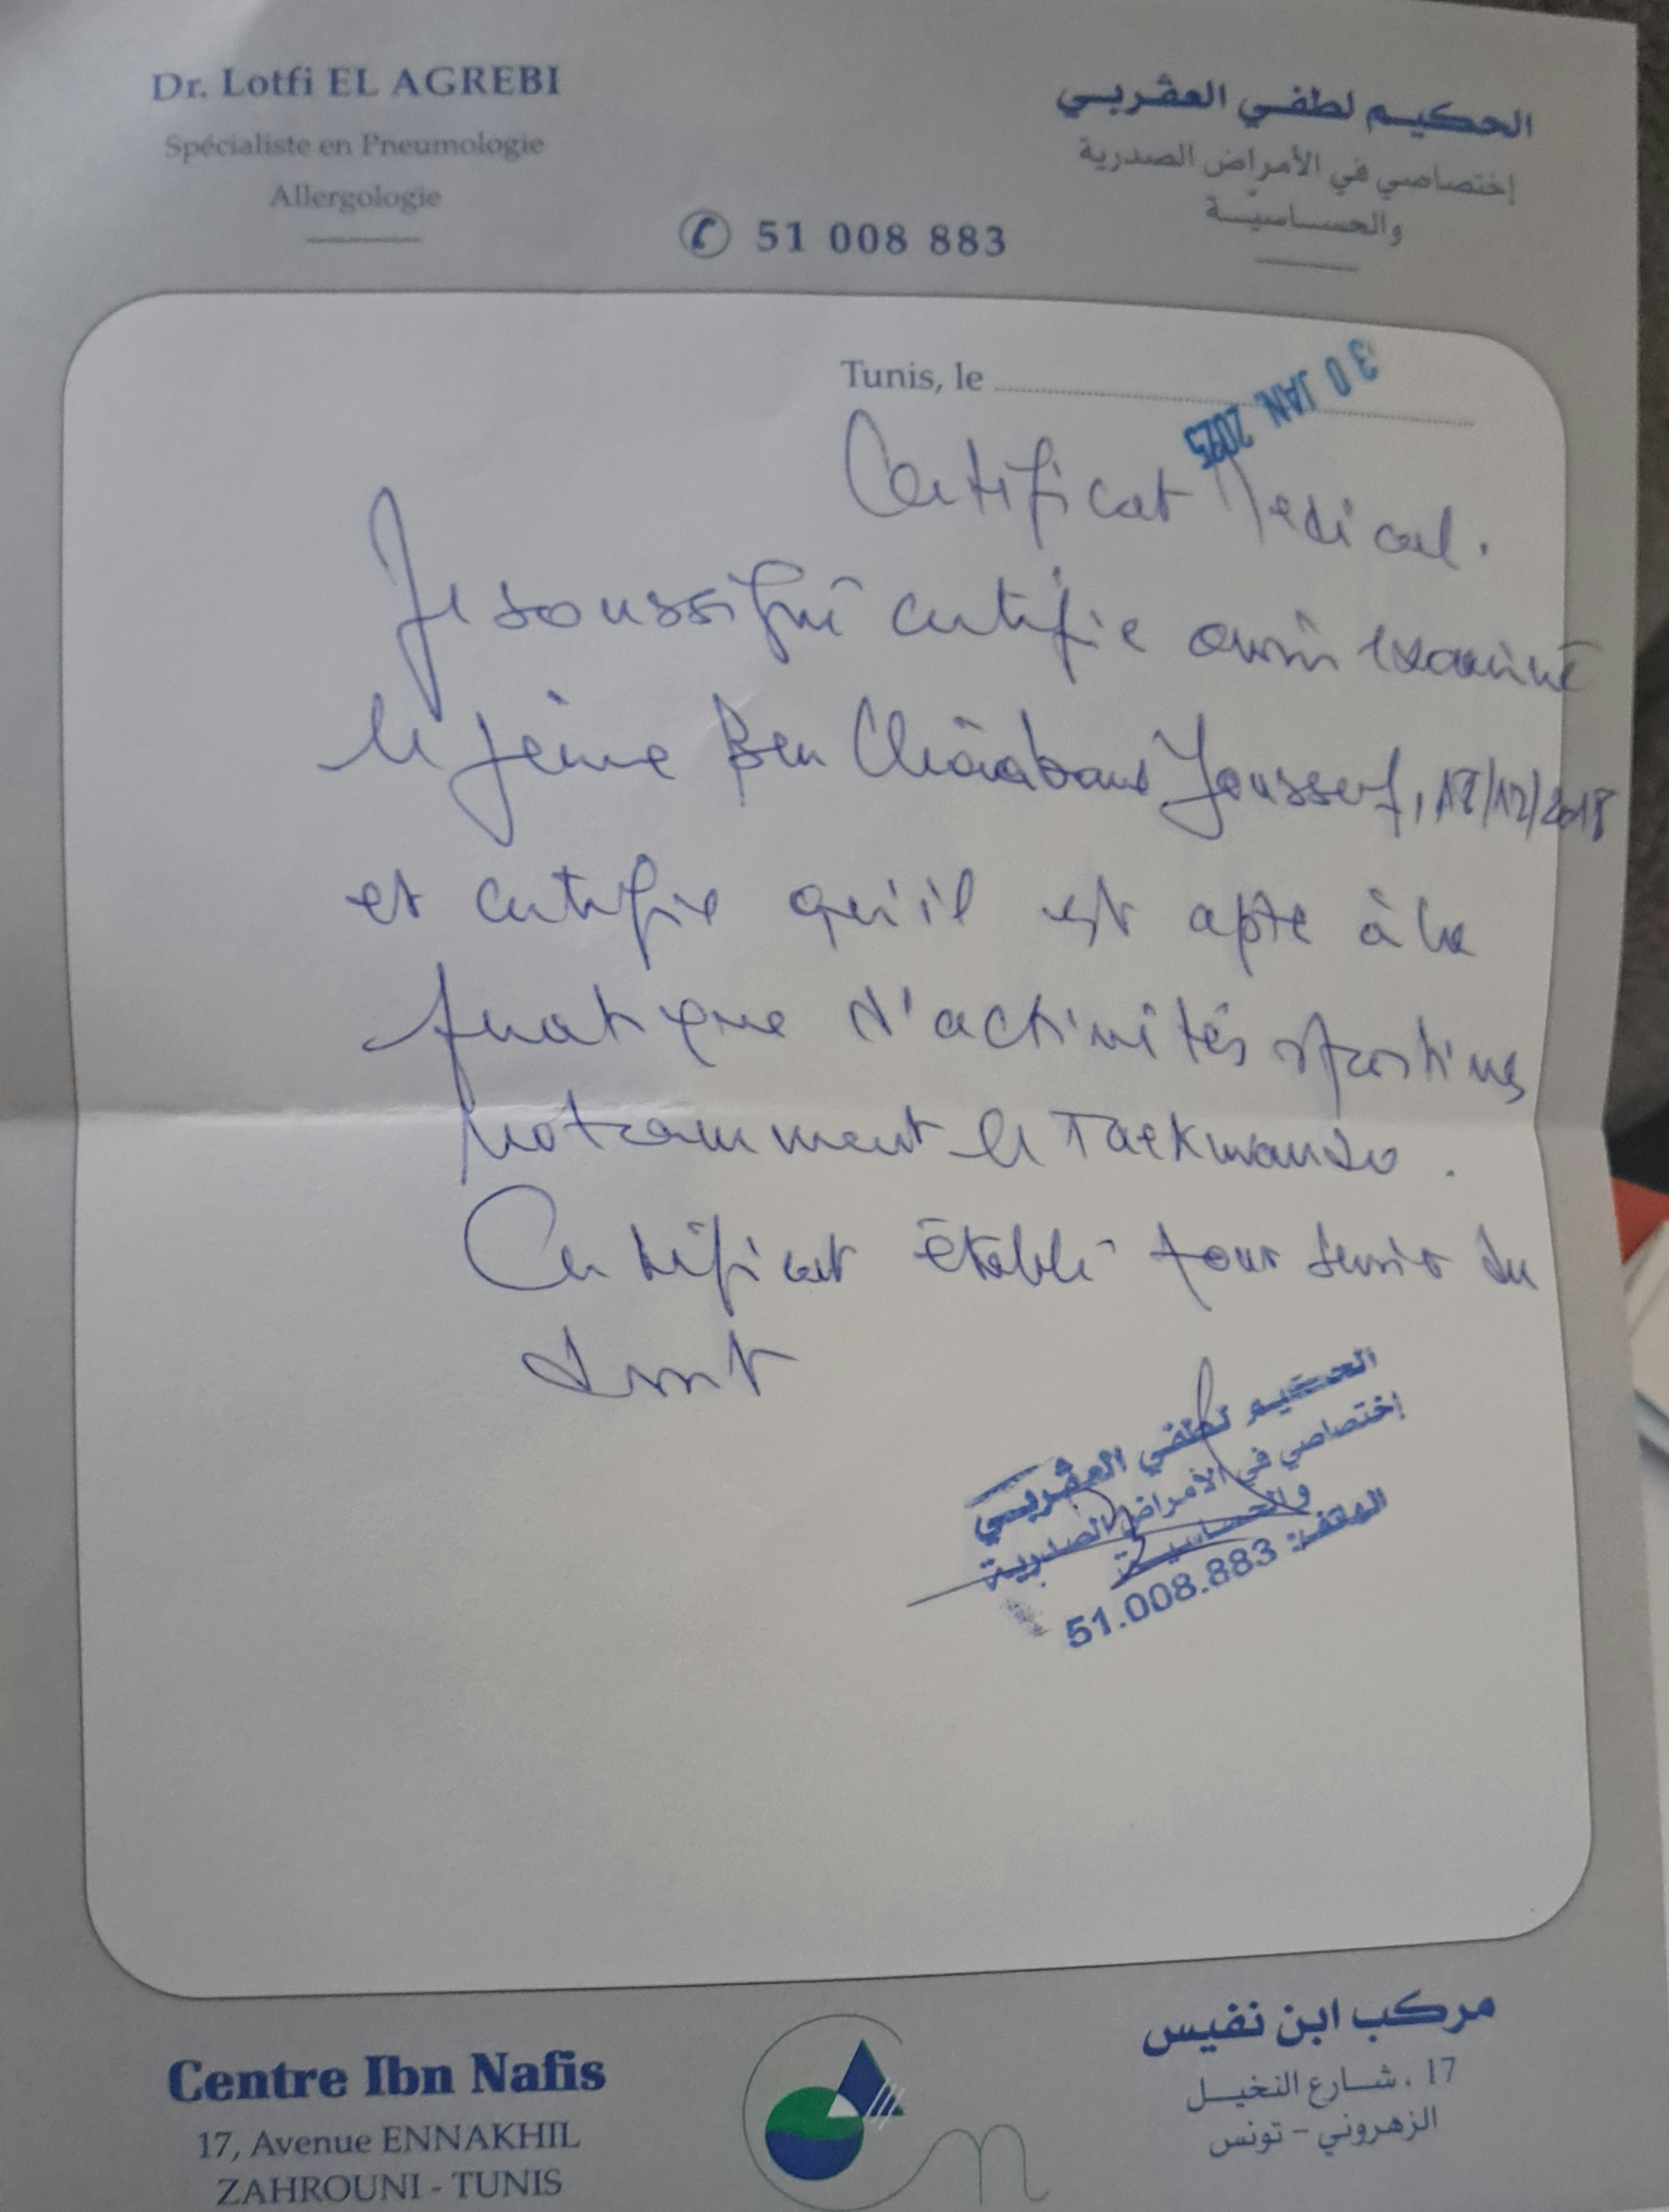 Dr. Lotfi EL AGREBI
Spécialiste en Pneumologie
Allergologie
الحكيم لطفي العڤربي
إختصاصي في الأمراض الصدرية
والحساسيّة
51 008 883
Tunis, le
30 JAN. 2025
Certificat Medical.
Je soussigné certifie avoir examiné
le jeune Ben Chaabane Youssef, 18/12/2018
et certifie qu'il est apte à la
pratique d'activités sportives
notamment le Taekwando.
Certificat établi pour servir du
droit
الحكيم لطفي العڤربي
إختصاصي في الأمراض الصدرية
والحساسيّة
الهاتف: 51.008.883
Centre Ibn Nafis
17, Avenue ENNAKHIL
ZAHROUNI - TUNIS
مركب ابن نفيس
17 ، شارع النخيل
الزهروني - تونس